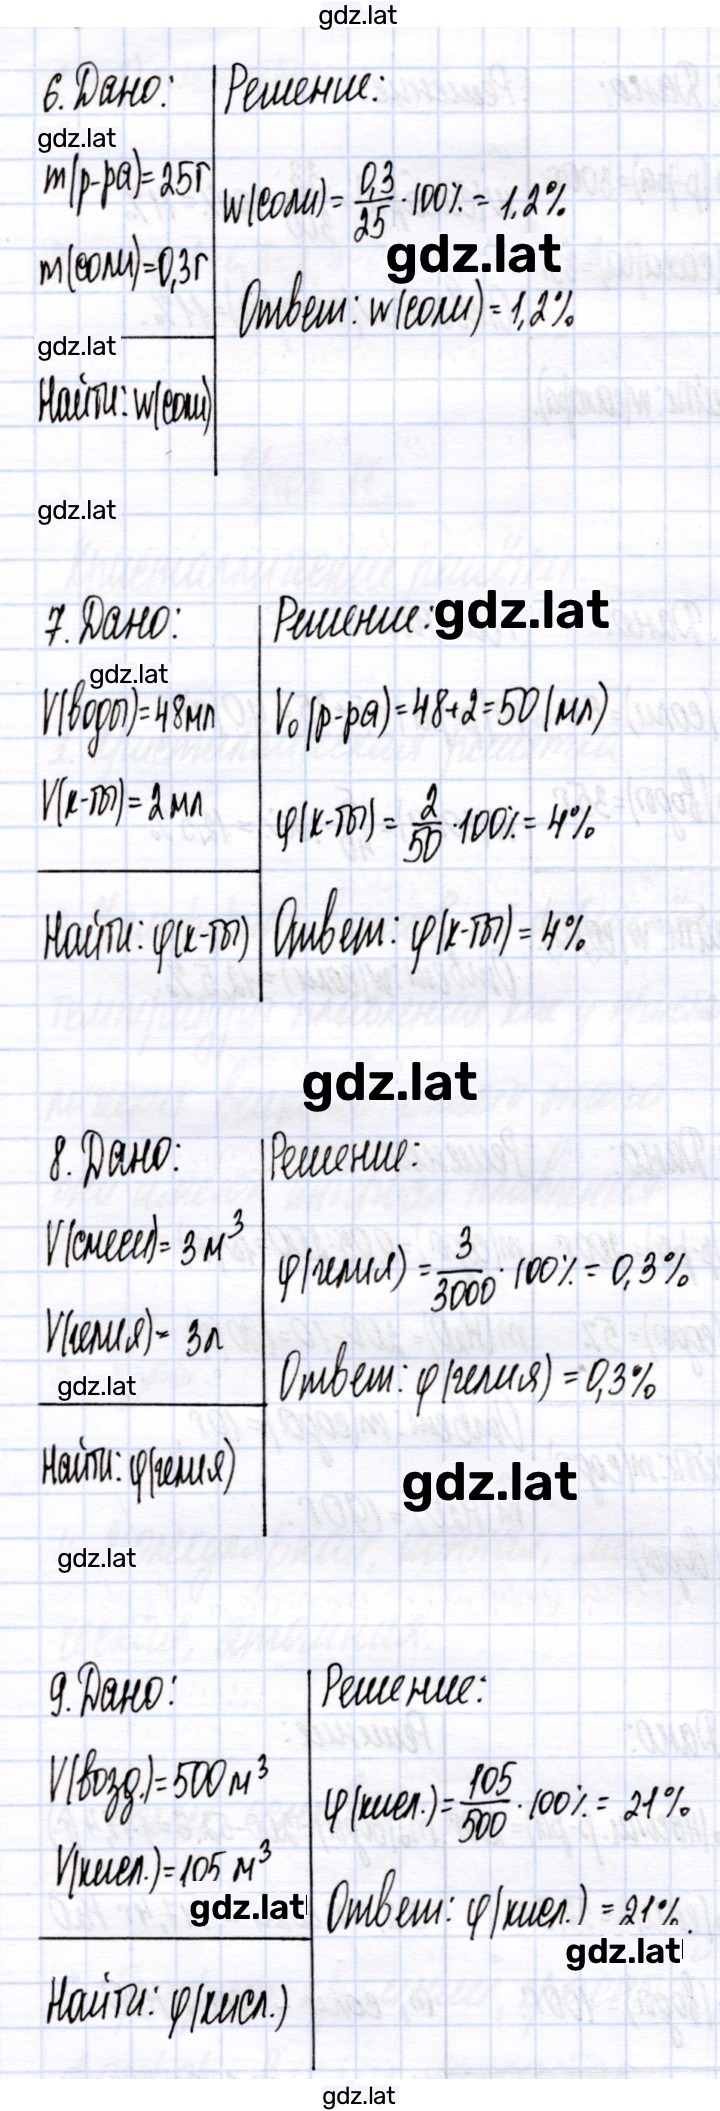 gdz.lat
6. Дано:
gdz.lat
m(р-ра)=25г
m(соли)=0,3г
gdz.lat
Найти: w(соли)
Решение:
w(соли) = 0,3/25 · 100% = 1,2%
gdz.lat
Ответ: w(соли) = 1,2%
gdz.lat
7. Дано:
gdz.lat
V(воды)=48мл
V(к-ты)=2мл
Найти: φ(к-ты)
Решение: gdz.lat
V₀(р-ра)=48+2=50(мл)
φ(к-ты) = 2/50 · 100% = 4%
Ответ: φ(к-ты) = 4%
gdz.lat
8. Дано:
V(смеси)= 3 м³
V(гелия)= 3л
gdz.lat
Найти: φ(гелия)
Решение:
φ(гелия) = 3/3000 · 100% = 0,3%
Ответ: φ(гелия) = 0,3%
gdz.lat
gdz.lat
9. Дано:
V(возд.)=500 м³
V(кисл.)=105 м³
gdz.lat
Найти: φ(кисл.)
Решение:
φ(кисл.)= 105/500 · 100% = 21%
Ответ: φ(кисл.) = 21%.
gdz.lat
gdz.lat